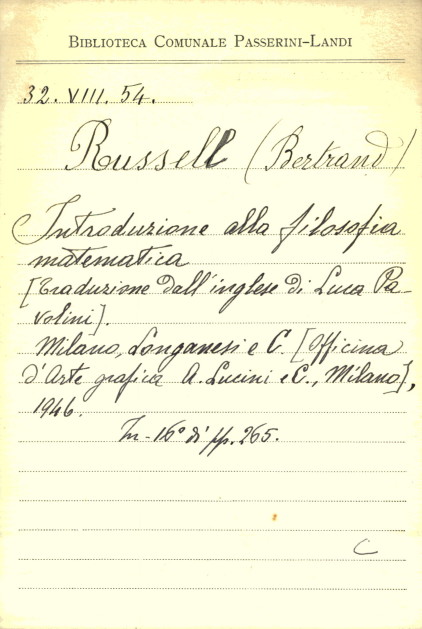 BIBLIOTECA COMUNALE PASSERINI-LANDI
32. VIII. 54.
Russell (Bertrand)
Introduzione alla filosofia
matematica
[Traduzione dall'inglese di Luca Pa-
volini].
Milano, Longanesi e C. [Officina
d'Arte grafica A. Lucini e C., Milano],
1946.
In-16° di pp. 265.
C